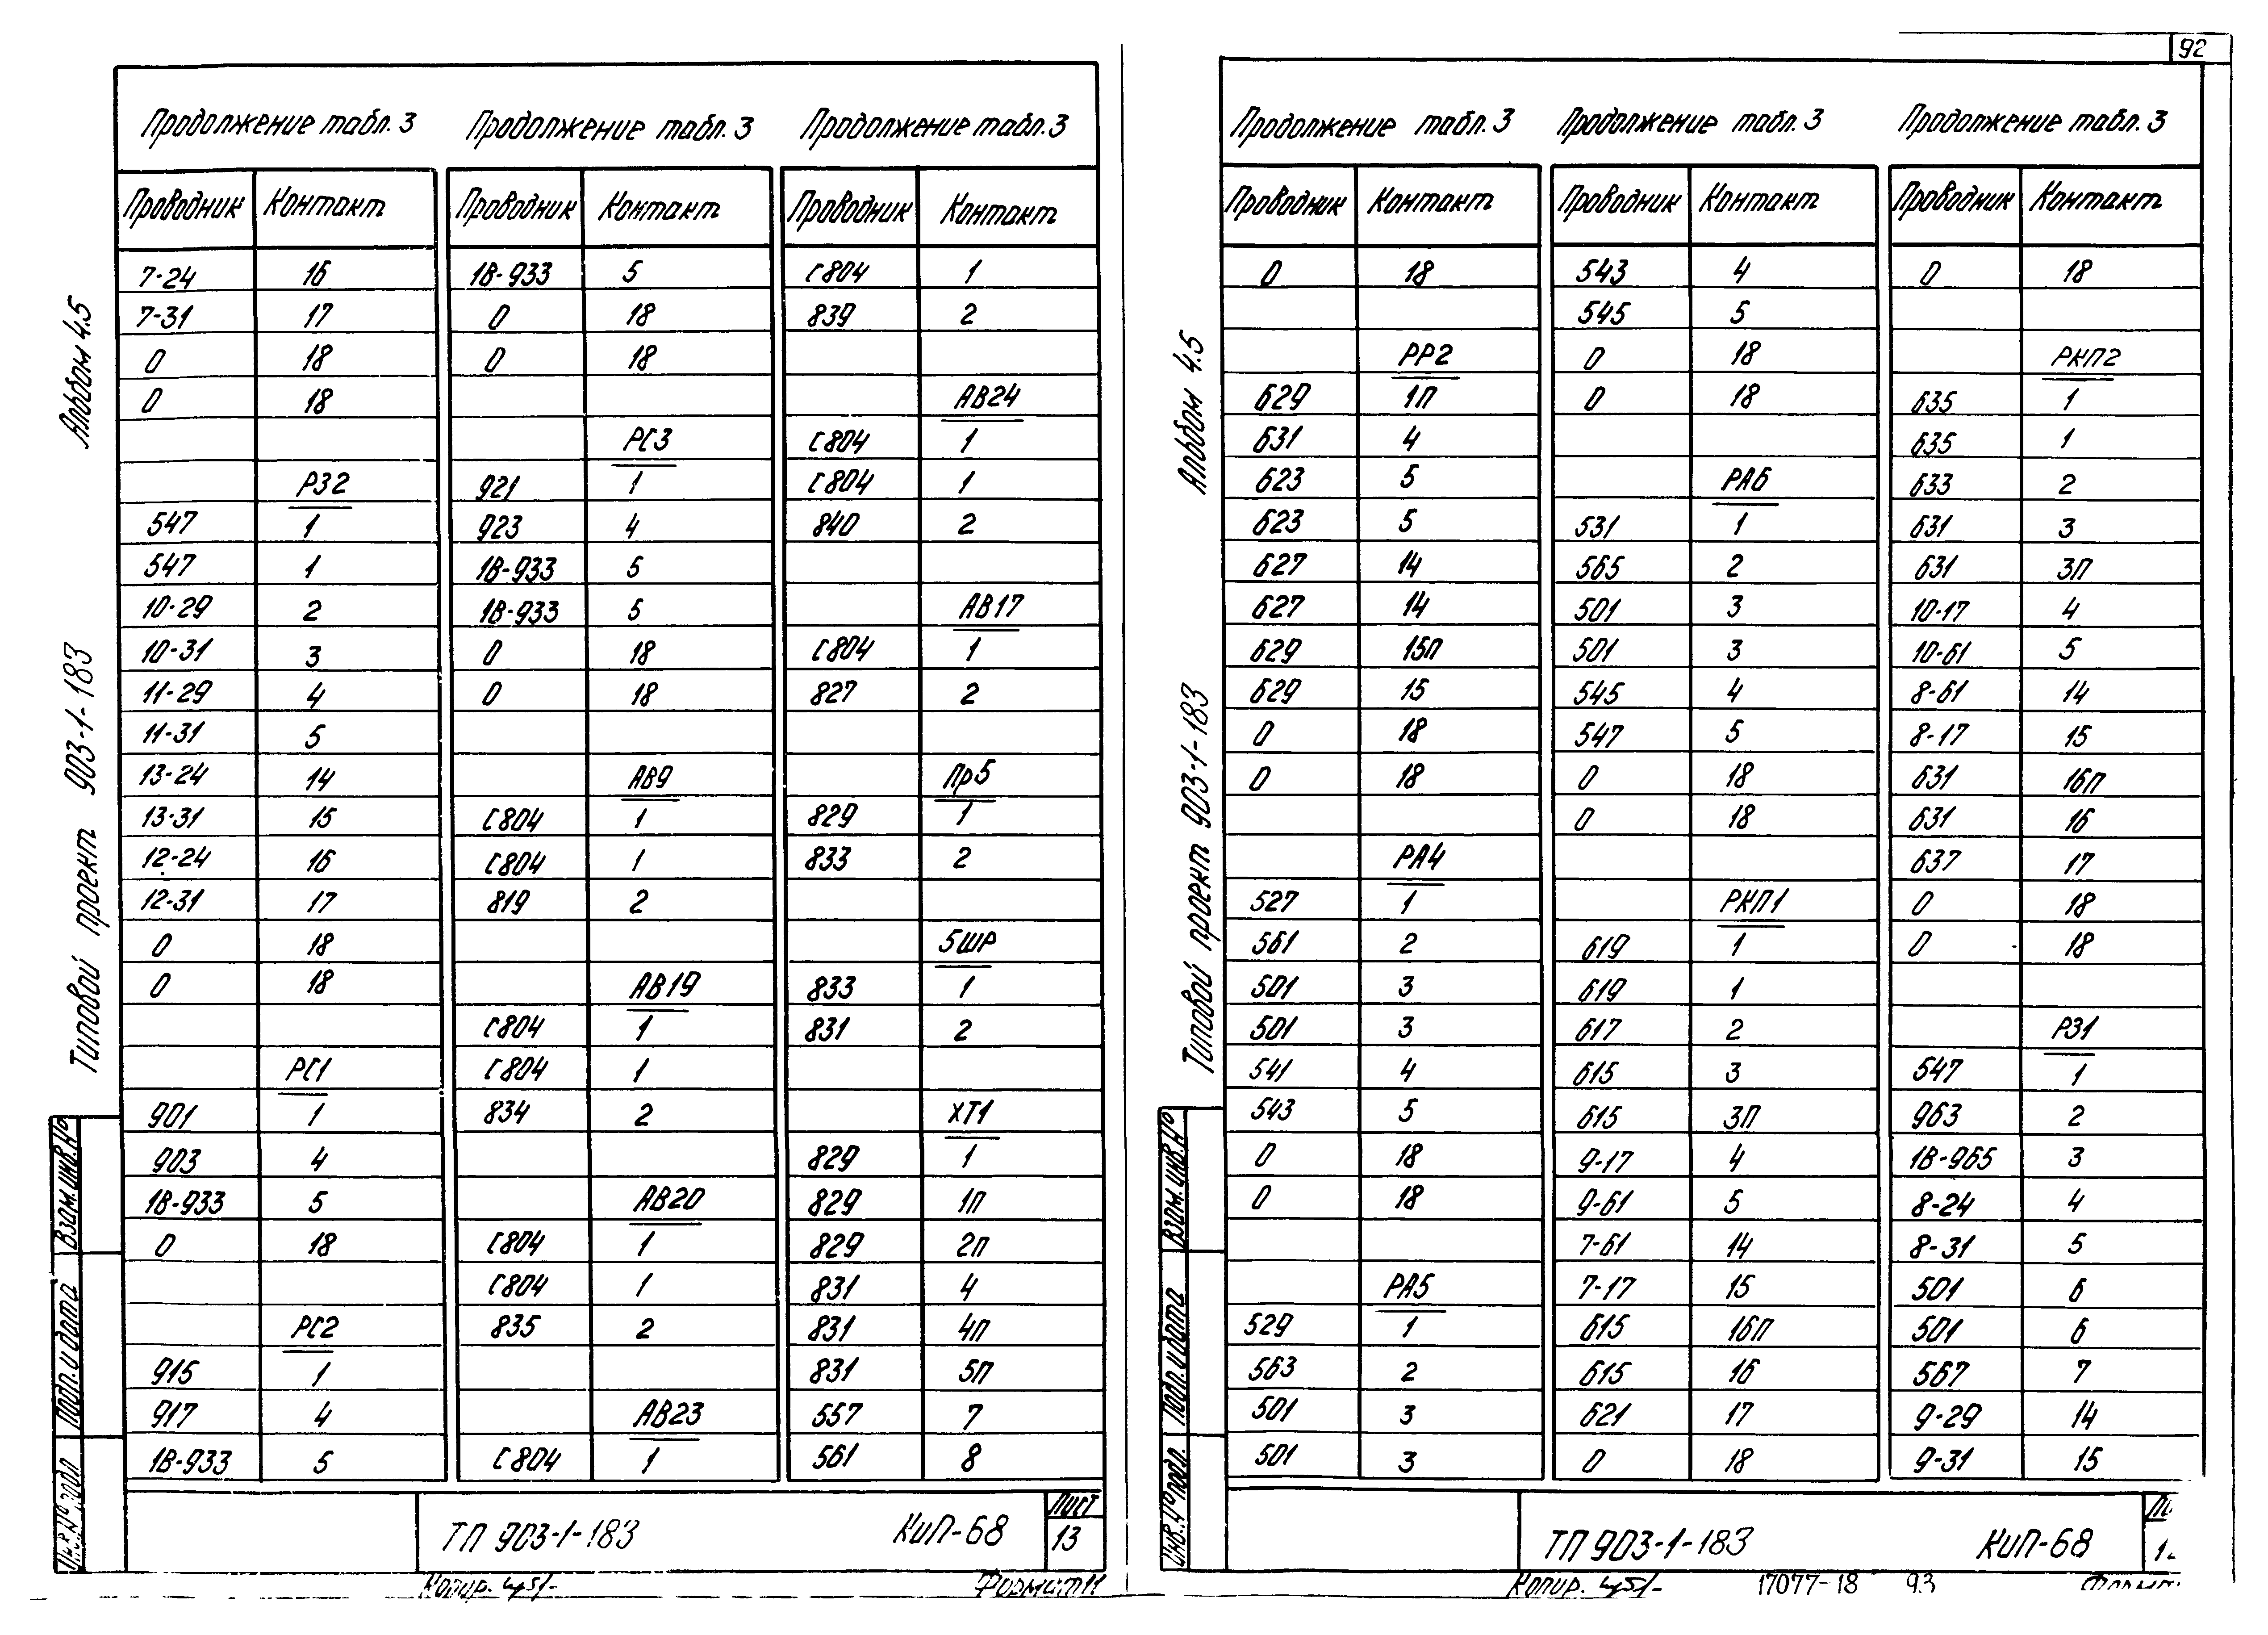 92
Продолжение табл. 3
Проводник Контакт
7-24 16
7-31 17
0 18
0 18
РЗ2
547 1
547 1
10-29 2
10-31 3
11-29 4
11-31 5
13-24 14
13-31 15
12-24 16
12-31 17
0 18
0 18
РС1
901 1
903 4
1В-933 5
0 18
РС2
915 1
917 4
1В-933 5
Продолжение табл. 3
Проводник Контакт
1В-933 5
0 18
0 18
РС3
921 1
923 4
1В-933 5
1В-933 5
0 18
0 18
АВ9
С804 1
С804 1
819 2
АВ19
С804 1
С804 1
834 2
АВ20
С804 1
С804 1
835 2
АВ23
С804 1
Продолжение табл. 3
Проводник Контакт
С804 1
839 2
АВ24
С804 1
С804 1
840 2
АВ17
С804 1
827 2
Пр5
829 1
833 2
5ШР
833 1
831 2
ХТ1
829 1
829 1п
829 2п
831 4
831 4п
831 5п
557 7
561 8
Альбом 4.5
Типовой проект 903-1-183
Взам. инв. №
Подп. и дата
Инв. № подл
ТП 903-1-183 КиП-68
Лист
13
Копир.
Формат 11
Продолжение табл. 3
Проводник Контакт
0 18
РР2
629 1П
631 4
623 5
623 5
627 14
627 14
629 15П
629 15
0 18
0 18
РА4
527 1
561 2
501 3
501 3
541 4
543 5
0 18
0 18
РА5
529 1
563 2
501 3
501 3
Продолжение табл. 3
Проводник Контакт
543 4
545 5
0 18
0 18
РА6
531 1
565 2
501 3
501 3
545 4
547 5
0 18
0 18
РКП1
619 1
619 1
617 2
615 3
615 3П
9-17 4
9-61 5
7-61 14
7-17 15
615 16П
615 16
621 17
0 18
Продолжение табл. 3
Проводник Контакт
0 18
РКП2
635 1
635 1
633 2
631 3
631 3П
10-17 4
10-61 5
8-61 14
8-17 15
631 16П
631 16
637 17
0 18
0 18
РЗ1
547 1
963 2
1В-965 3
8-24 4
8-31 5
501 6
501 6
567 7
9-29 14
9-31 15
Альбом 4.5
Типовой проект 903-1-183
Взам. инв. №
Подп. и дата
Инв. № подл.
ТП 903-1-183 КиП-68
Копир.
17077-18 93